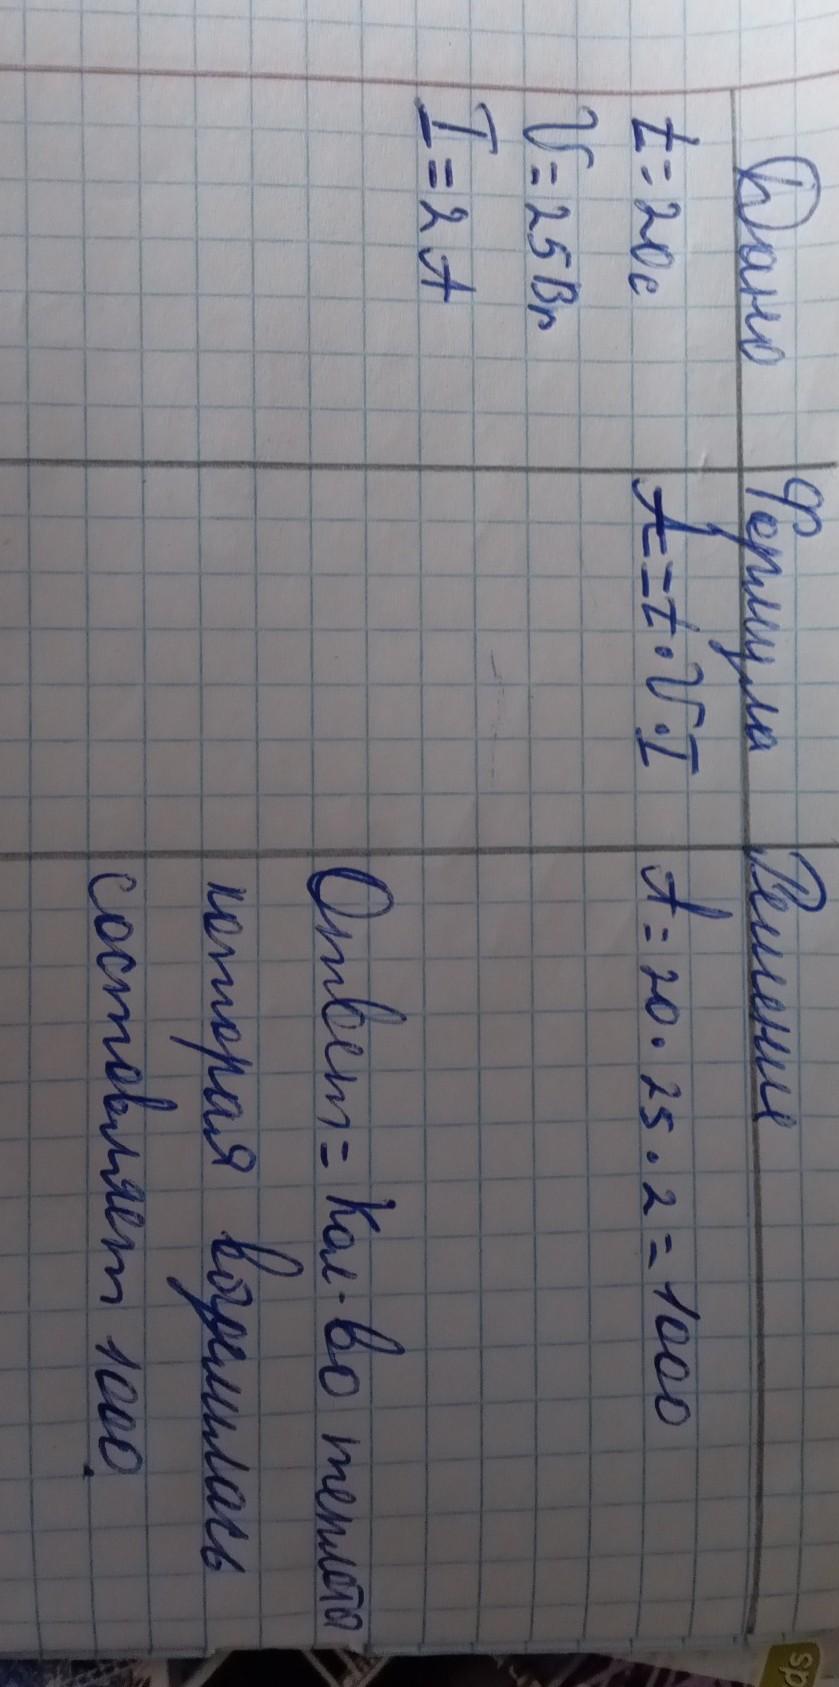 Дано
t = 20с
U = 25Вт
I = 2 А
Формула
A = t · U · I
Решение
A = 20 · 25 · 2 = 1000
Ответ = Кол-во теплота
которая выделилась
составляет 1000.
sp